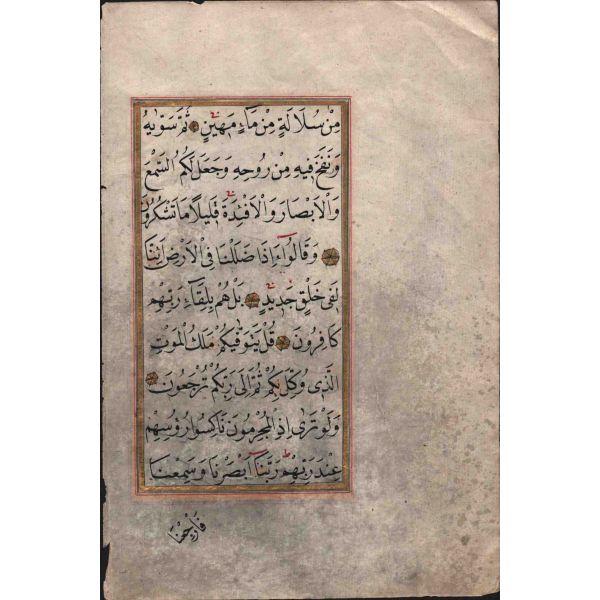 مِنْ سُلَالَةٍ مِنْ مَٓاءٍ مَهٖينٍ ثُمَّ سَوّٰيهُ
وَنَفَخَ فٖيهِ مِنْ رُوحِهٖ وَجَعَلَ لَكُمُ السَّمْعَ
وَالْاَبْصَارَ وَالْاَفْئِدَةَ قَلٖيلًا مَا تَشْكُرُونَ
وَقَالُٓوا ءَاِذَا ضَلَلْنَا فِى الْاَرْضِ اَئِنَّا
لَفٖى خَلْقٍ جَدٖيدٍ بَلْ هُمْ بِلِقَٓاءِ رَبِّهِمْ
كَافِرُونَ قُلْ يَتَوَفّٰيكُمْ مَلَكُ الْمَوْتِ
الَّذٖى وُكِّلَ بِكُمْ ثُمَّ اِلٰى رَبِّكُمْ تُرْجَعُونَ
وَلَوْ تَرٰٓى اِذِ الْمُجْرِمُونَ نَاكِسُوا رُؤُسِهِمْ
عِنْدَ رَبِّهِمْ رَبَّنَٓا اَبْصَرْنَا وَسَمِعْنَا
فَارْجِعْنَا